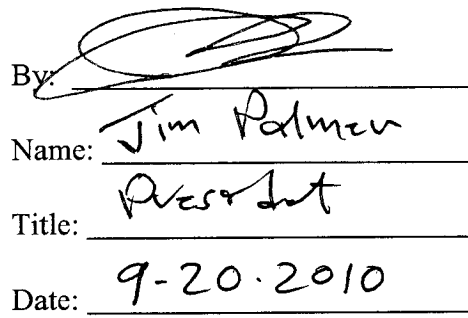 By:
Name: Jim Palmer
Title: President
Date: 9-20.2010